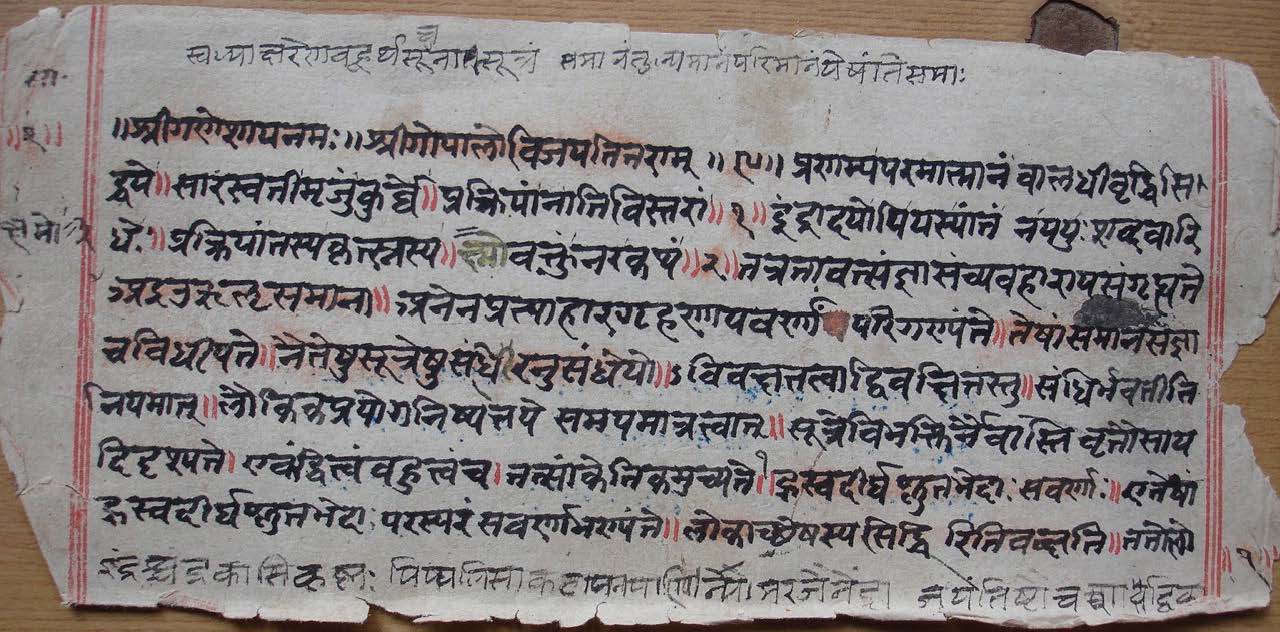 स्वल्पाक्षरेण बह्वर्थसूचनात् सूत्रं समानंतुल्यमानंपरिमानंयेषांतेसमाः
॥१॥
॥श्रीगणेशायनमः॥श्रीगोपालोविजयतितराम्॥ ॥प्रणम्यपरमात्मानंवालधीवृद्धिसि
द्धये॥सारस्वतीमृजुंकुर्वे॥प्रक्रियांनातिविस्तरां॥१॥इंद्रादयोपियस्यांतं नययुःशब्दवारि
धेः॥प्रक्रियांतस्यकृत्स्नस्य॥क्षमोवक्तुंनरःकथं॥२॥तत्रतावत्संज्ञासंव्यवहारायसंगृह्यते
अइउऋऌसमाना॥अनेनप्रत्याहारगृहणायवर्णाः परिगण्यंते॥तेषांसमानसंज्ञा
चविधीयते॥नैतेषुसूत्रेषुसंधीरनुसंधेयो॥ऽविवक्षतत्वाद्विवक्षितस्तु॥संधिर्भवतीति
नियमात्॥लौकिकप्रयोगनिष्पत्तये समयमात्रत्वात्॥सूत्रेविभक्तिर्नैवास्ति वृत्तौसाय
दिदृश्यते।एवंद्वित्वंवहुत्वंच।तत्सांकेतिकमुच्यते।ह्रस्वदीर्घप्लुतभेदाःसवर्णाः॥एतेषां
ह्रस्वदीर्घप्लुतभेदाःपरस्परंसवर्णाभण्यंते॥लोकाच्छेषस्यसिद्धिरितिवक्ष्यति॥ततोलो
इंद्रश्चंद्र काशिकृत्स्नः पिष्पलिसाकटायनपाणिन्यमरजैनेंद्रा जयंतिष्टौच
१